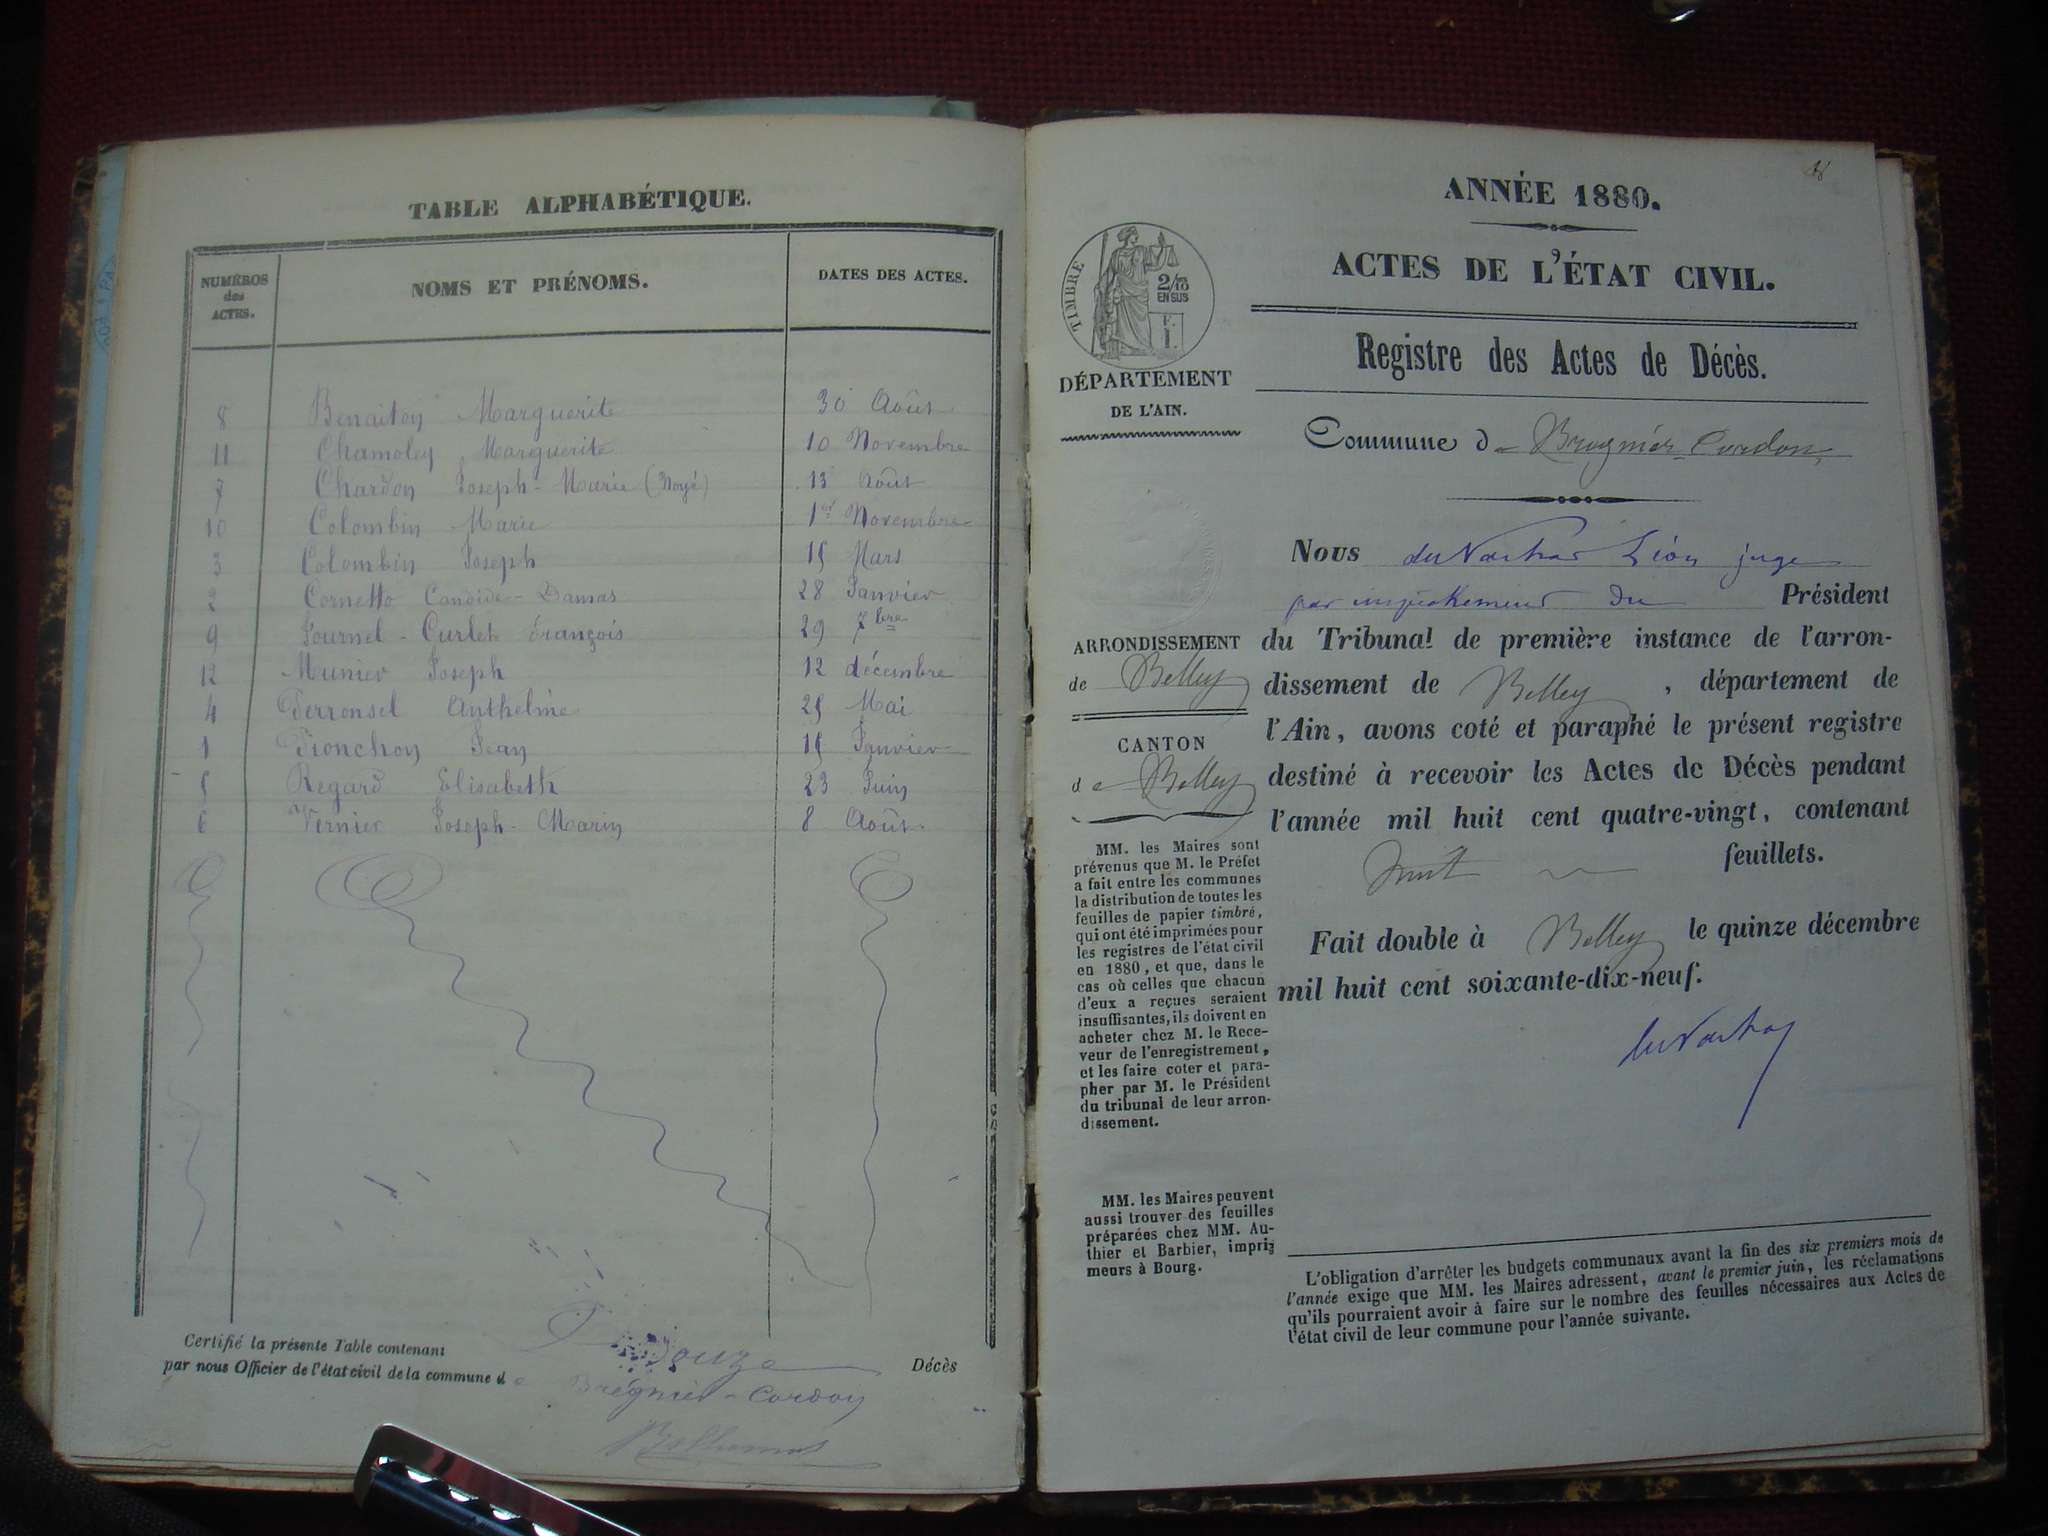 TABLE ALPHABÉTIQUE.
NUMÉROS des ACTES. NOMS ET PRÉNOMS. DATES DES ACTES.
8 Benaiton Marguerite 30 Août
11 Chamoley Marguerite 10 Novembre
7 Chardon Joseph-Marie (Noyé) 13 Août
10 Colombin Marie 1er Novembre
3 Colombin Joseph 15 Mars
2 Cornetto Candide-Damas 28 Janvier
9 Journel-Curlet François 29 7bre
12 Munier Joseph 12 décembre
4 Perronsel Anthelme 25 Mai
1 Pionchon Jean 15 Janvier
5 Regard Elisabeth 23 Juin
6 Vernier Joseph-Marin 8 Août
Certifié la présente Table contenant Douze Décès
par nous Officier de l'état civil de la commune de Brégnier-Cordon
ANNÉE 1880.
ACTES DE L'ÉTAT CIVIL.
Registre des Actes de Décès.
TIMBRE
2/10
EN SUS
DÉPARTEMENT
DE L'AIN.
Commune de Bregnier-Cordon
Nous Léon juge
par empêchement du Président
du Tribunal de première instance de l'arron-
dissement de Belley, département de
l'Ain, avons coté et paraphé le présent registre
destiné à recevoir les Actes de Décès pendant
l'année mil huit cent quatre-vingt, contenant
huit feuillets.
Fait double à Belley le quinze décembre
mil huit cent soixante-dix-neuf.
ARRONDISSEMENT
de Belley
CANTON
de Belley
MM. les Maires sont
prévenus que M. le Préfet
a fait entre les communes
la distribution de toutes les
feuilles de papier timbré,
qui ont été imprimées pour
les registres de l'état civil
en 1880, et que, dans le
cas où celles que chacun
d'eux a reçues seraient
insuffisantes, ils doivent en
acheter chez M. le Rece-
veur de l'enregistrement,
et les faire coter et para-
pher par M. le Président
du tribunal de leur arron-
dissement.
MM. les Maires peuvent
aussi trouver des feuilles
préparées chez MM. Au-
thier et Barbier, impri-
meurs à Bourg.
L'obligation d'arrêter les budgets communaux avant la fin des six premiers mois de
l'année exige que MM. les Maires adressent, avant le premier juin, les réclamations
qu'ils pourraient avoir à faire sur le nombre des feuilles nécessaires aux Actes de
l'état civil de leur commune pour l'année suivante.